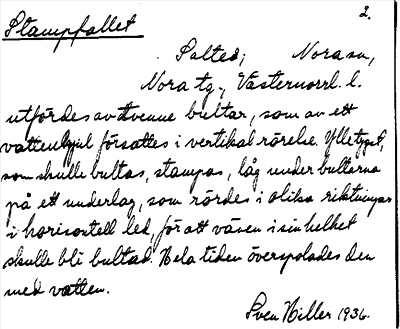 2.
Stampfallet
Salted; Nora sn,
Nora tg., Västernorrl. l.
utfördes av tvenne bultar, som av ett
vattenhjul försattes i vertikal rörelse. Ylletyget,
som skulle bultas, stampas, låg under bultarna
på ett underlag, som rördes i olika riktningar
i horisontell led, för att väven i sin helhet
skulle bli bultad. Hela tiden överspolades den
med vatten.
Sven Hiller 1936.